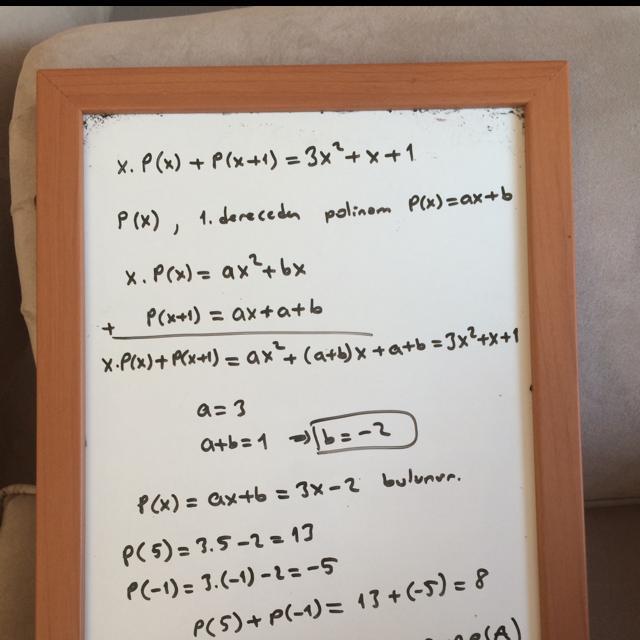 x. P(x) + P(x+1) = 3x²+x+1
P(x) , 1. dereceden polinom P(x)=ax+b
x. P(x) = ax²+bx
+ P(x+1) = ax+a+b
x.P(x)+P(x+1) = ax²+(a+b)x+a+b=3x²+x+1
a=3
a+b=1 ⇒ b=-2
P(x) = ax+b = 3x-2 bulunur.
P(5) = 3.5-2=13
P(-1)=3.(-1)-2=-5
P(5)+P(-1)= 13+(-5)=8